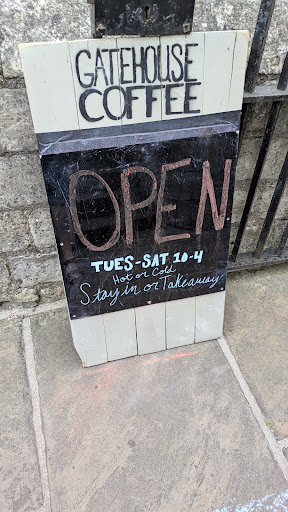 GATEHOUSE
COFFEE
OPEN
TUES-SAT 10-4
Hot or Cold
Stay in or Takeaway